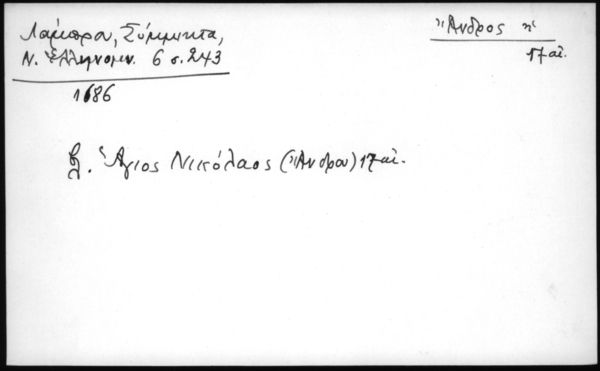 Λάμπρου, Σύμμικτα,
Ν. Ἑλληνομν. 6 σ. 243
1686
Ἄνδρος
17 αἰ.
βλ. Ἅγιος Νικόλαος (Ἄνδρου) 17 αἰ.